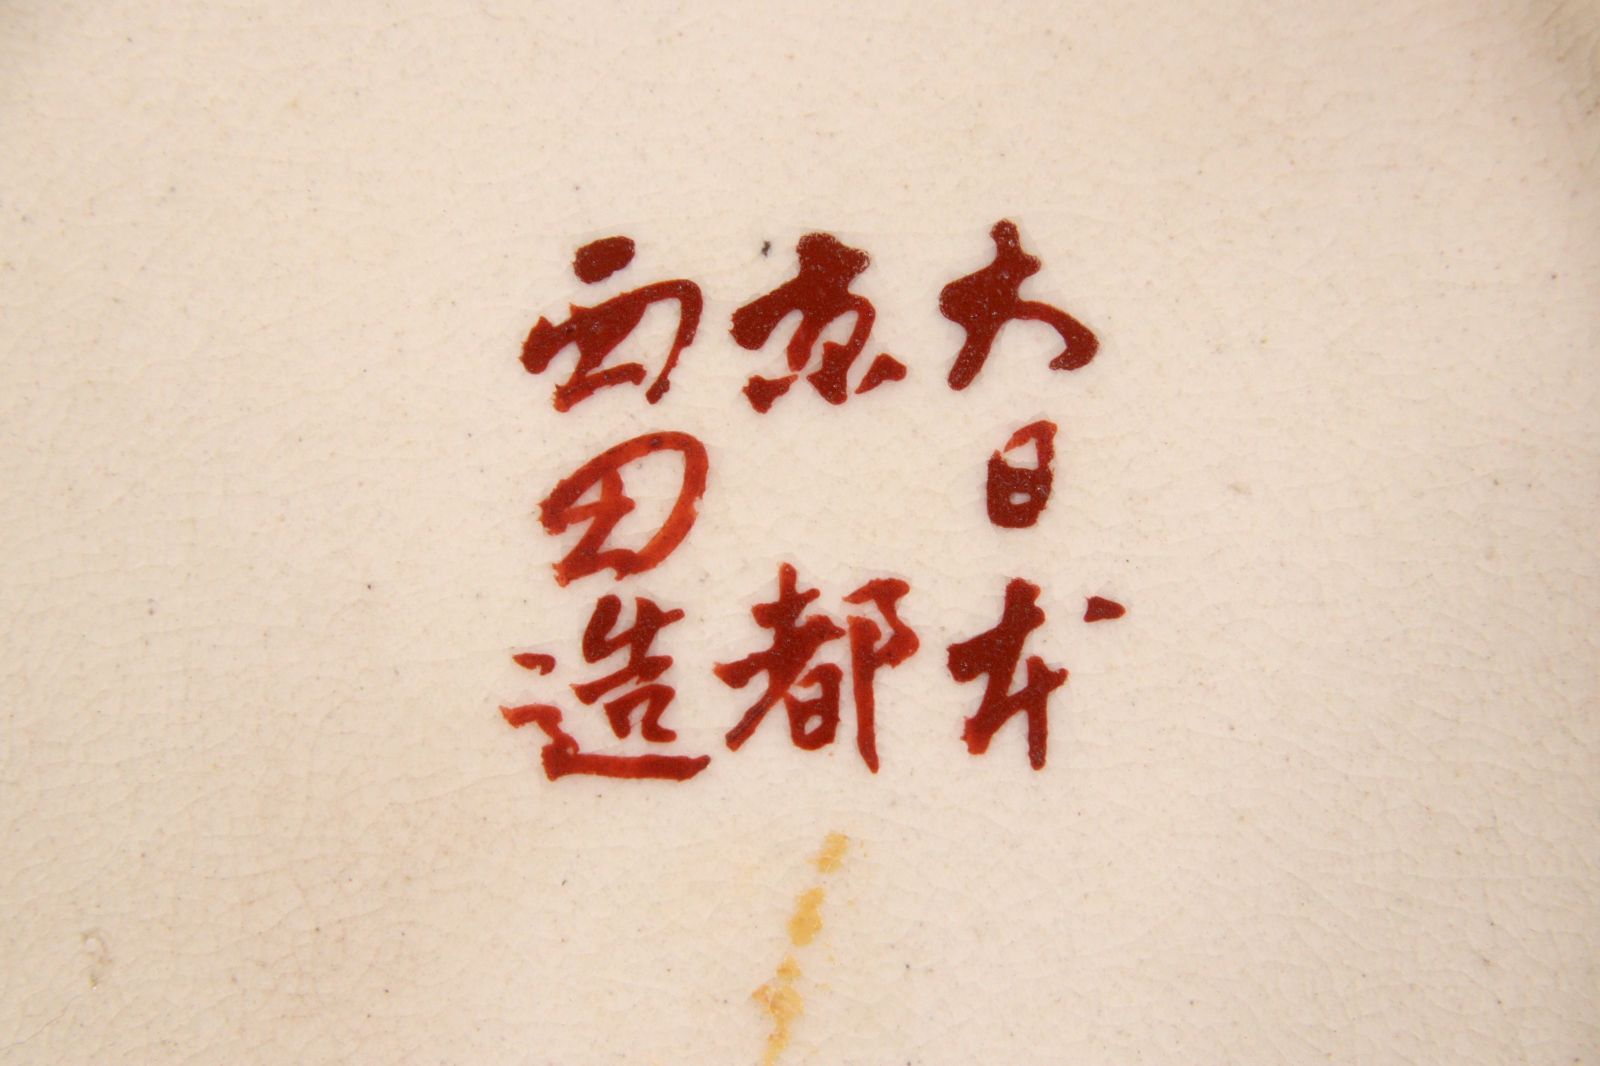 大日本
京都
西田造